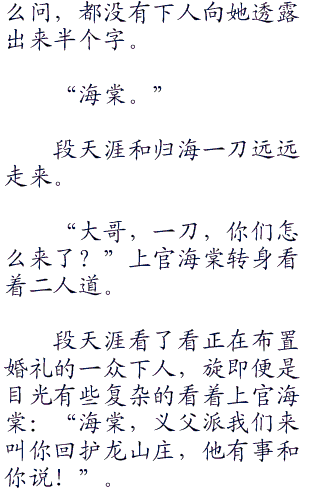 么问，都没有下人向她透露
出来半个字。
“海棠。”
段天涯和归海一刀远远
走来。
“大哥，一刀，你们怎
么来了？”上官海棠转身看
着二人道。
段天涯看了看正在布置
婚礼的一众下人，旋即便是
目光有些复杂的看着上官海
棠：“海棠，义父派我们来
叫你回护龙山庄，他有事和
你说！”。